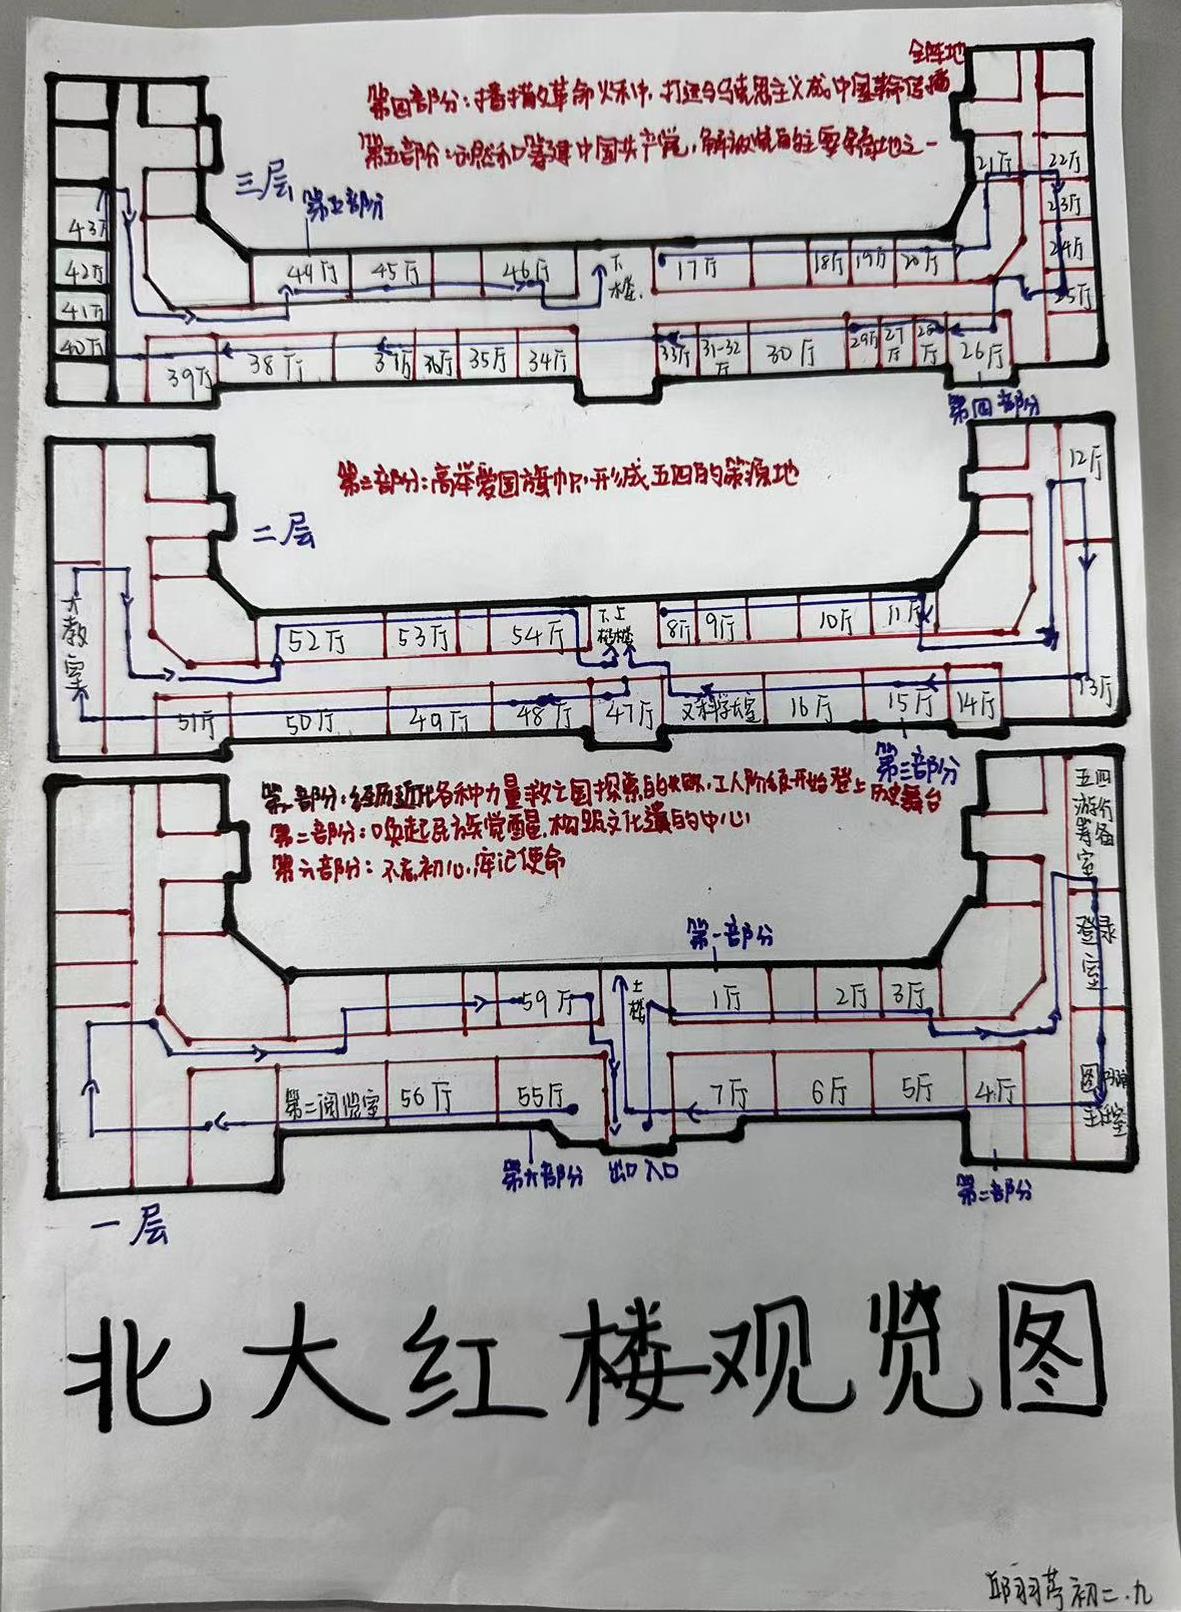 第四部分:播撒文革命火种,打造今马克思主义成中国革命传播
全阵地
第五部分:
中国共产党,
主要
地之一
三层
第五部分
44厅 45厅 46厅 下楼 17厅 18厅 19厅 20厅 21厅 22厅
23厅
24厅
25厅
43厅
42厅
41厅
40厅
39厅 38厅 37厅 36厅 35厅 34厅 33厅 31-32厅 30厅 29厅 27厅 28厅 26厅
第四部分
第三部分:高举爱国旗帜,形成五四的策源地
二层
12厅
大教室
52厅 53厅 54厅 下楼 上楼 8厅 9厅 10厅 11厅
51厅 50厅 49厅 48厅 47厅 文科学长室 16厅 15厅 14厅 13厅
第三部分
第一部分:经历近代各种力量救亡图探索的失败,工人阶级开始登上历史舞台
第二部分:唤起民族觉醒,构筑文化遗的中心
第六部分:不忘初心,牢记使命
五四游行筹备室
登录室
第一部分
59厅 上楼 1厅 2厅 3厅
第二阅览室 56厅 55厅 7厅 6厅 5厅 4厅 图书馆主任室
第六部分 出口 入口 第二部分
一层
北大红楼观览图
初二.九